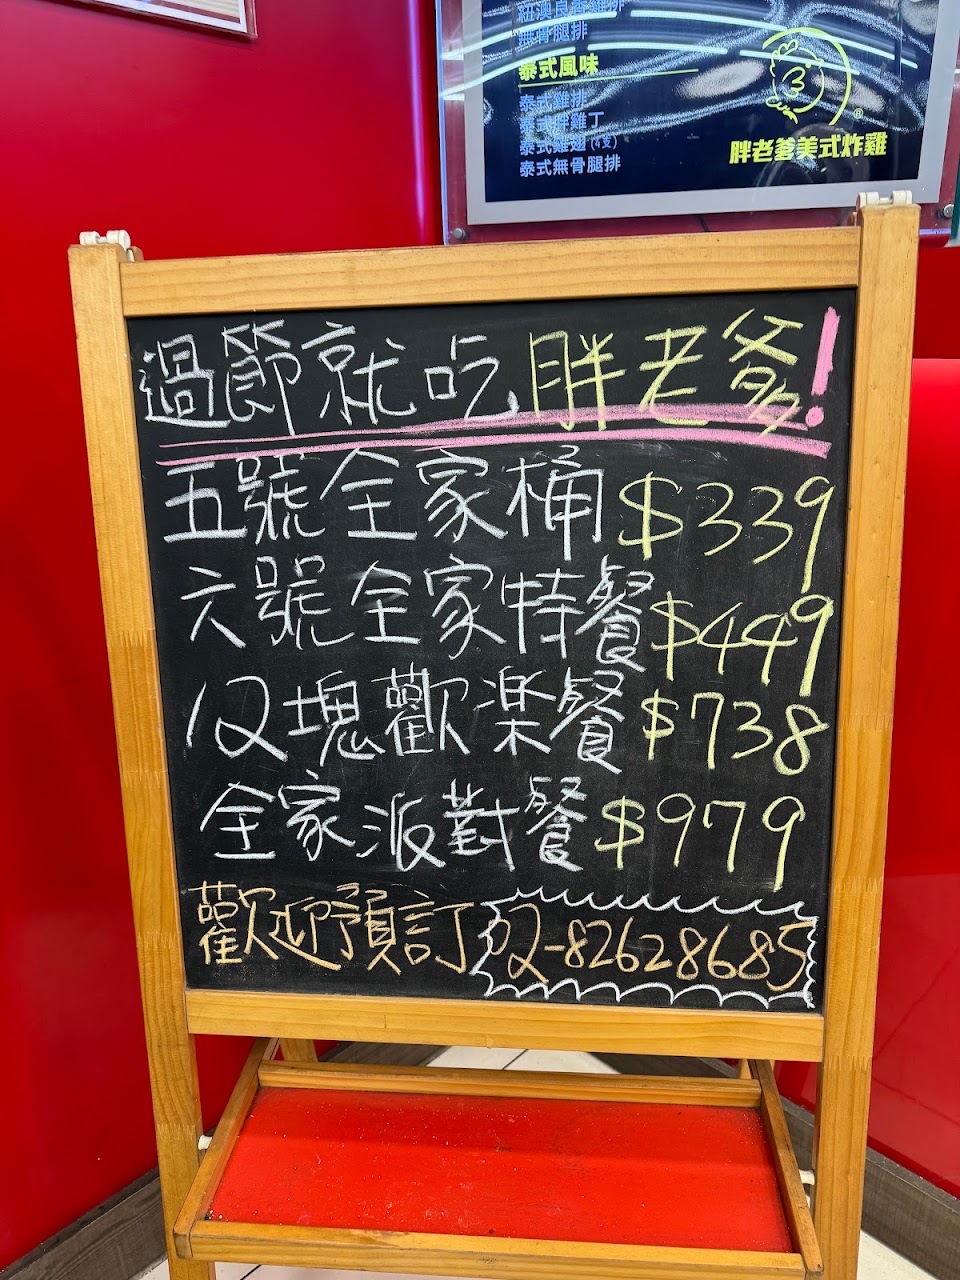 紐澳良香雞排
無骨腿排
泰式風味
泰式雞排
泰式胖雞丁
泰式雞翅(4支)
泰式無骨腿排
®
胖老爹美式炸雞
過節就吃胖老爹!
五號全家桶 $339
六號全家特餐 $449
12塊歡樂餐 $738
全家派對餐 $979
歡迎預訂 02-82628685